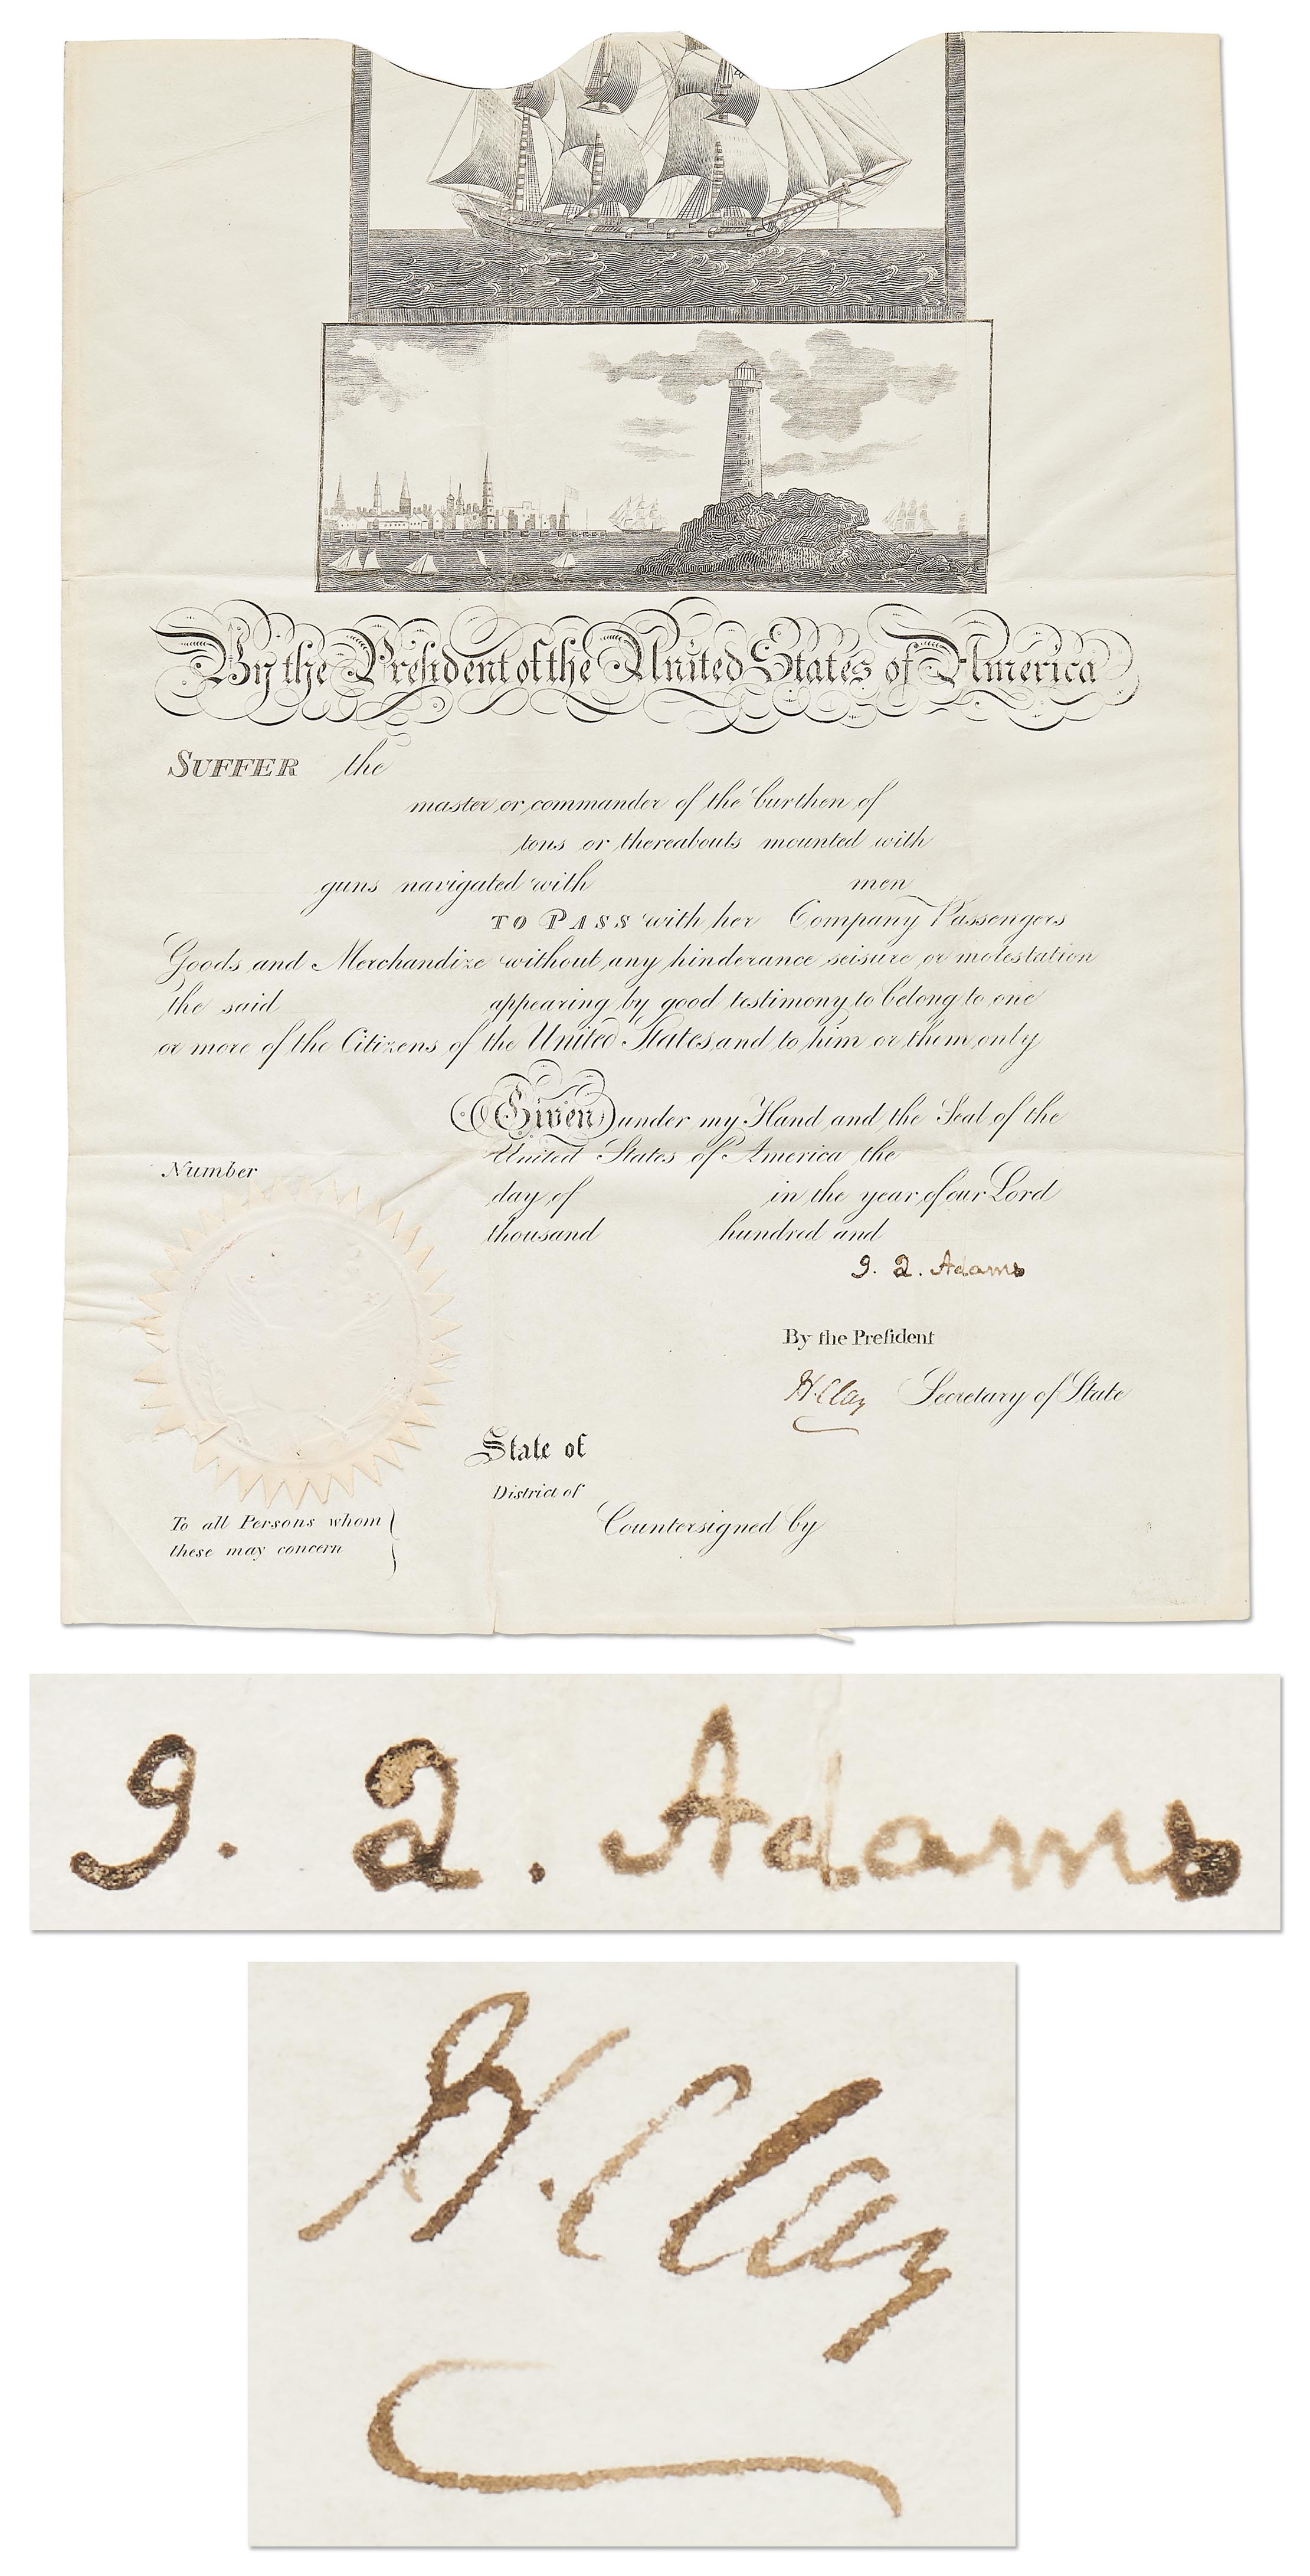 By the President of the United States of America
SUFFER the
master or commander of the burthen of
tons or thereabouts mounted with
guns navigated with men
TO PASS with her Company Passengers
Goods and Merchandize without any hinderance seisure or molestation
the said appearing by good testimony to belong to one
or more of the Citizens of the United States and to him or them only
Given under my Hand and the Seal of the
United States of America the
Number
day of in the year of our Lord
thousand hundred and
J. Q. Adams
By the Preſident
H. Clay Secretary of State
State of
District of
To all Persons whom
Countersigned by
these may concern
J. Q. Adams
H. Clay